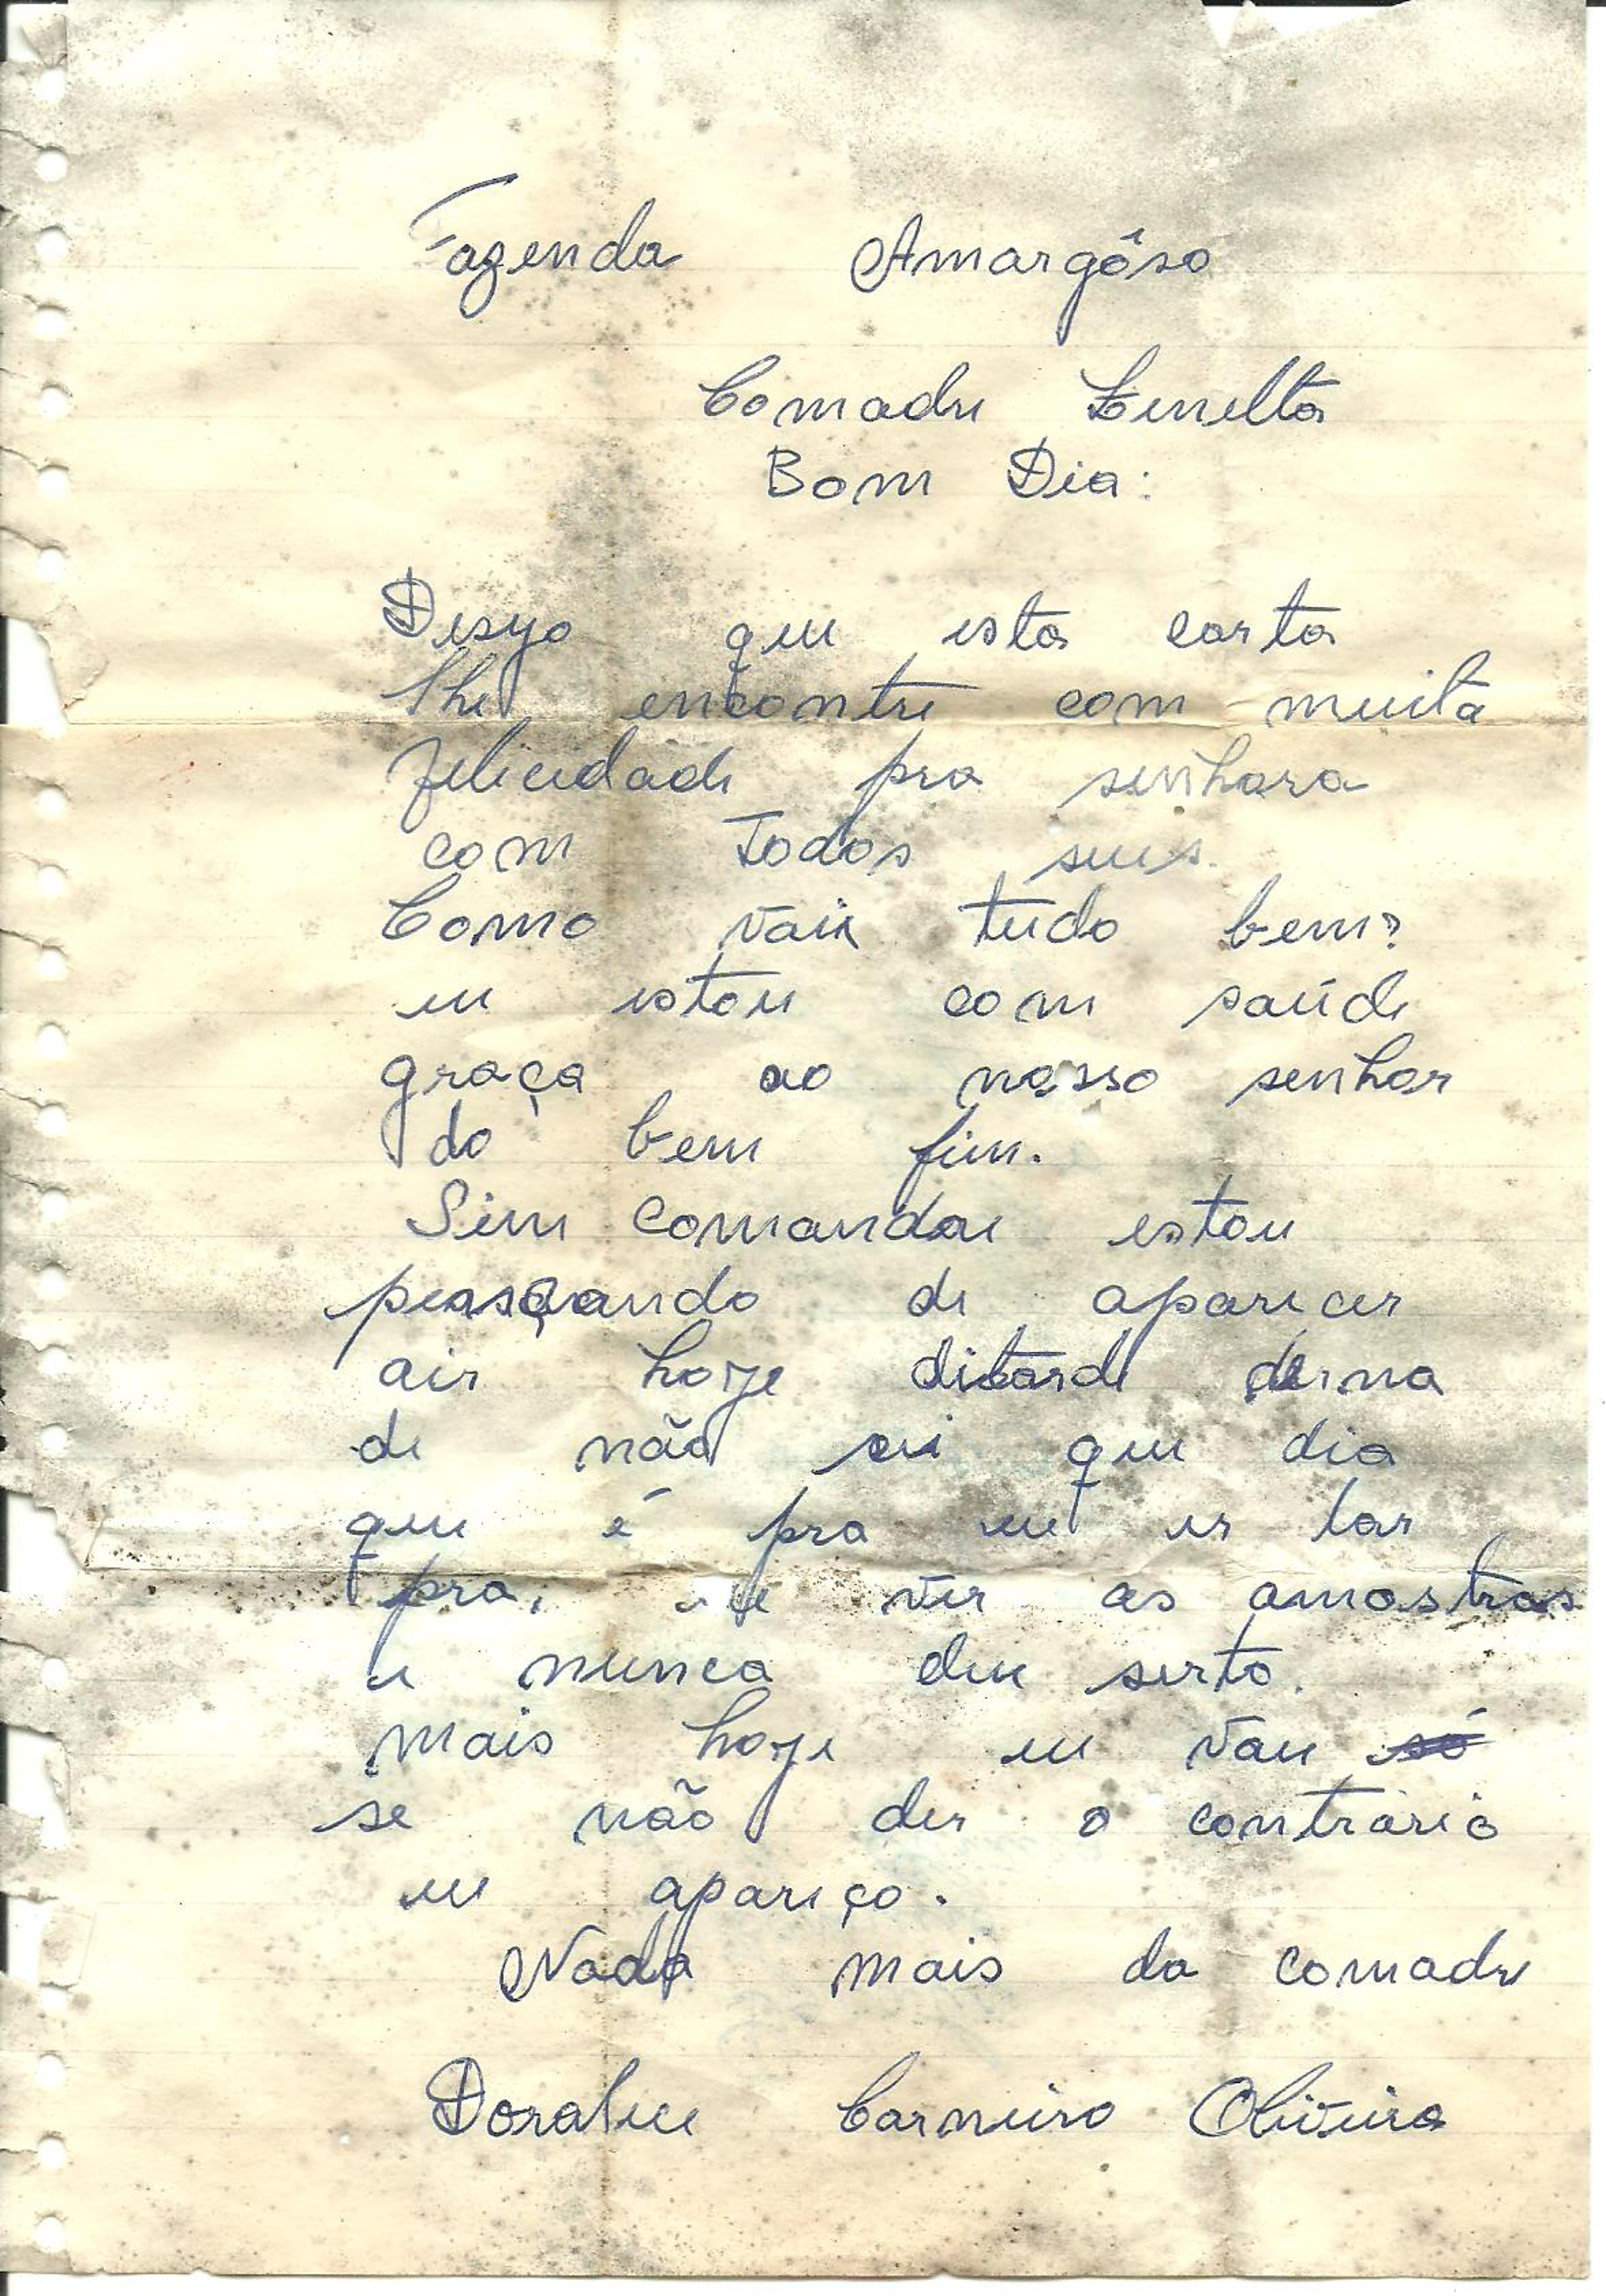 Fazenda Amargôso
Comadre Zenelta
Bom Dia:
Desejo que esta carta
lhe encontre com muita
felicidade pra senhora
com Todos seus.
Como vaii tudo bem?
eu estou com saúde
graça ao nosso senhor
do bem fim.
Sim comandre estou
pensando de aparecer
air hoje ditarde derna
de não sei que dia
que é pra eu ir lar
pra, ver as amostras
e nunca deu serto.
mais hoje eu vou só
se não der o contrario
eu apareço.
Nada mais da comadre
Doralice Carneiro Oliveira